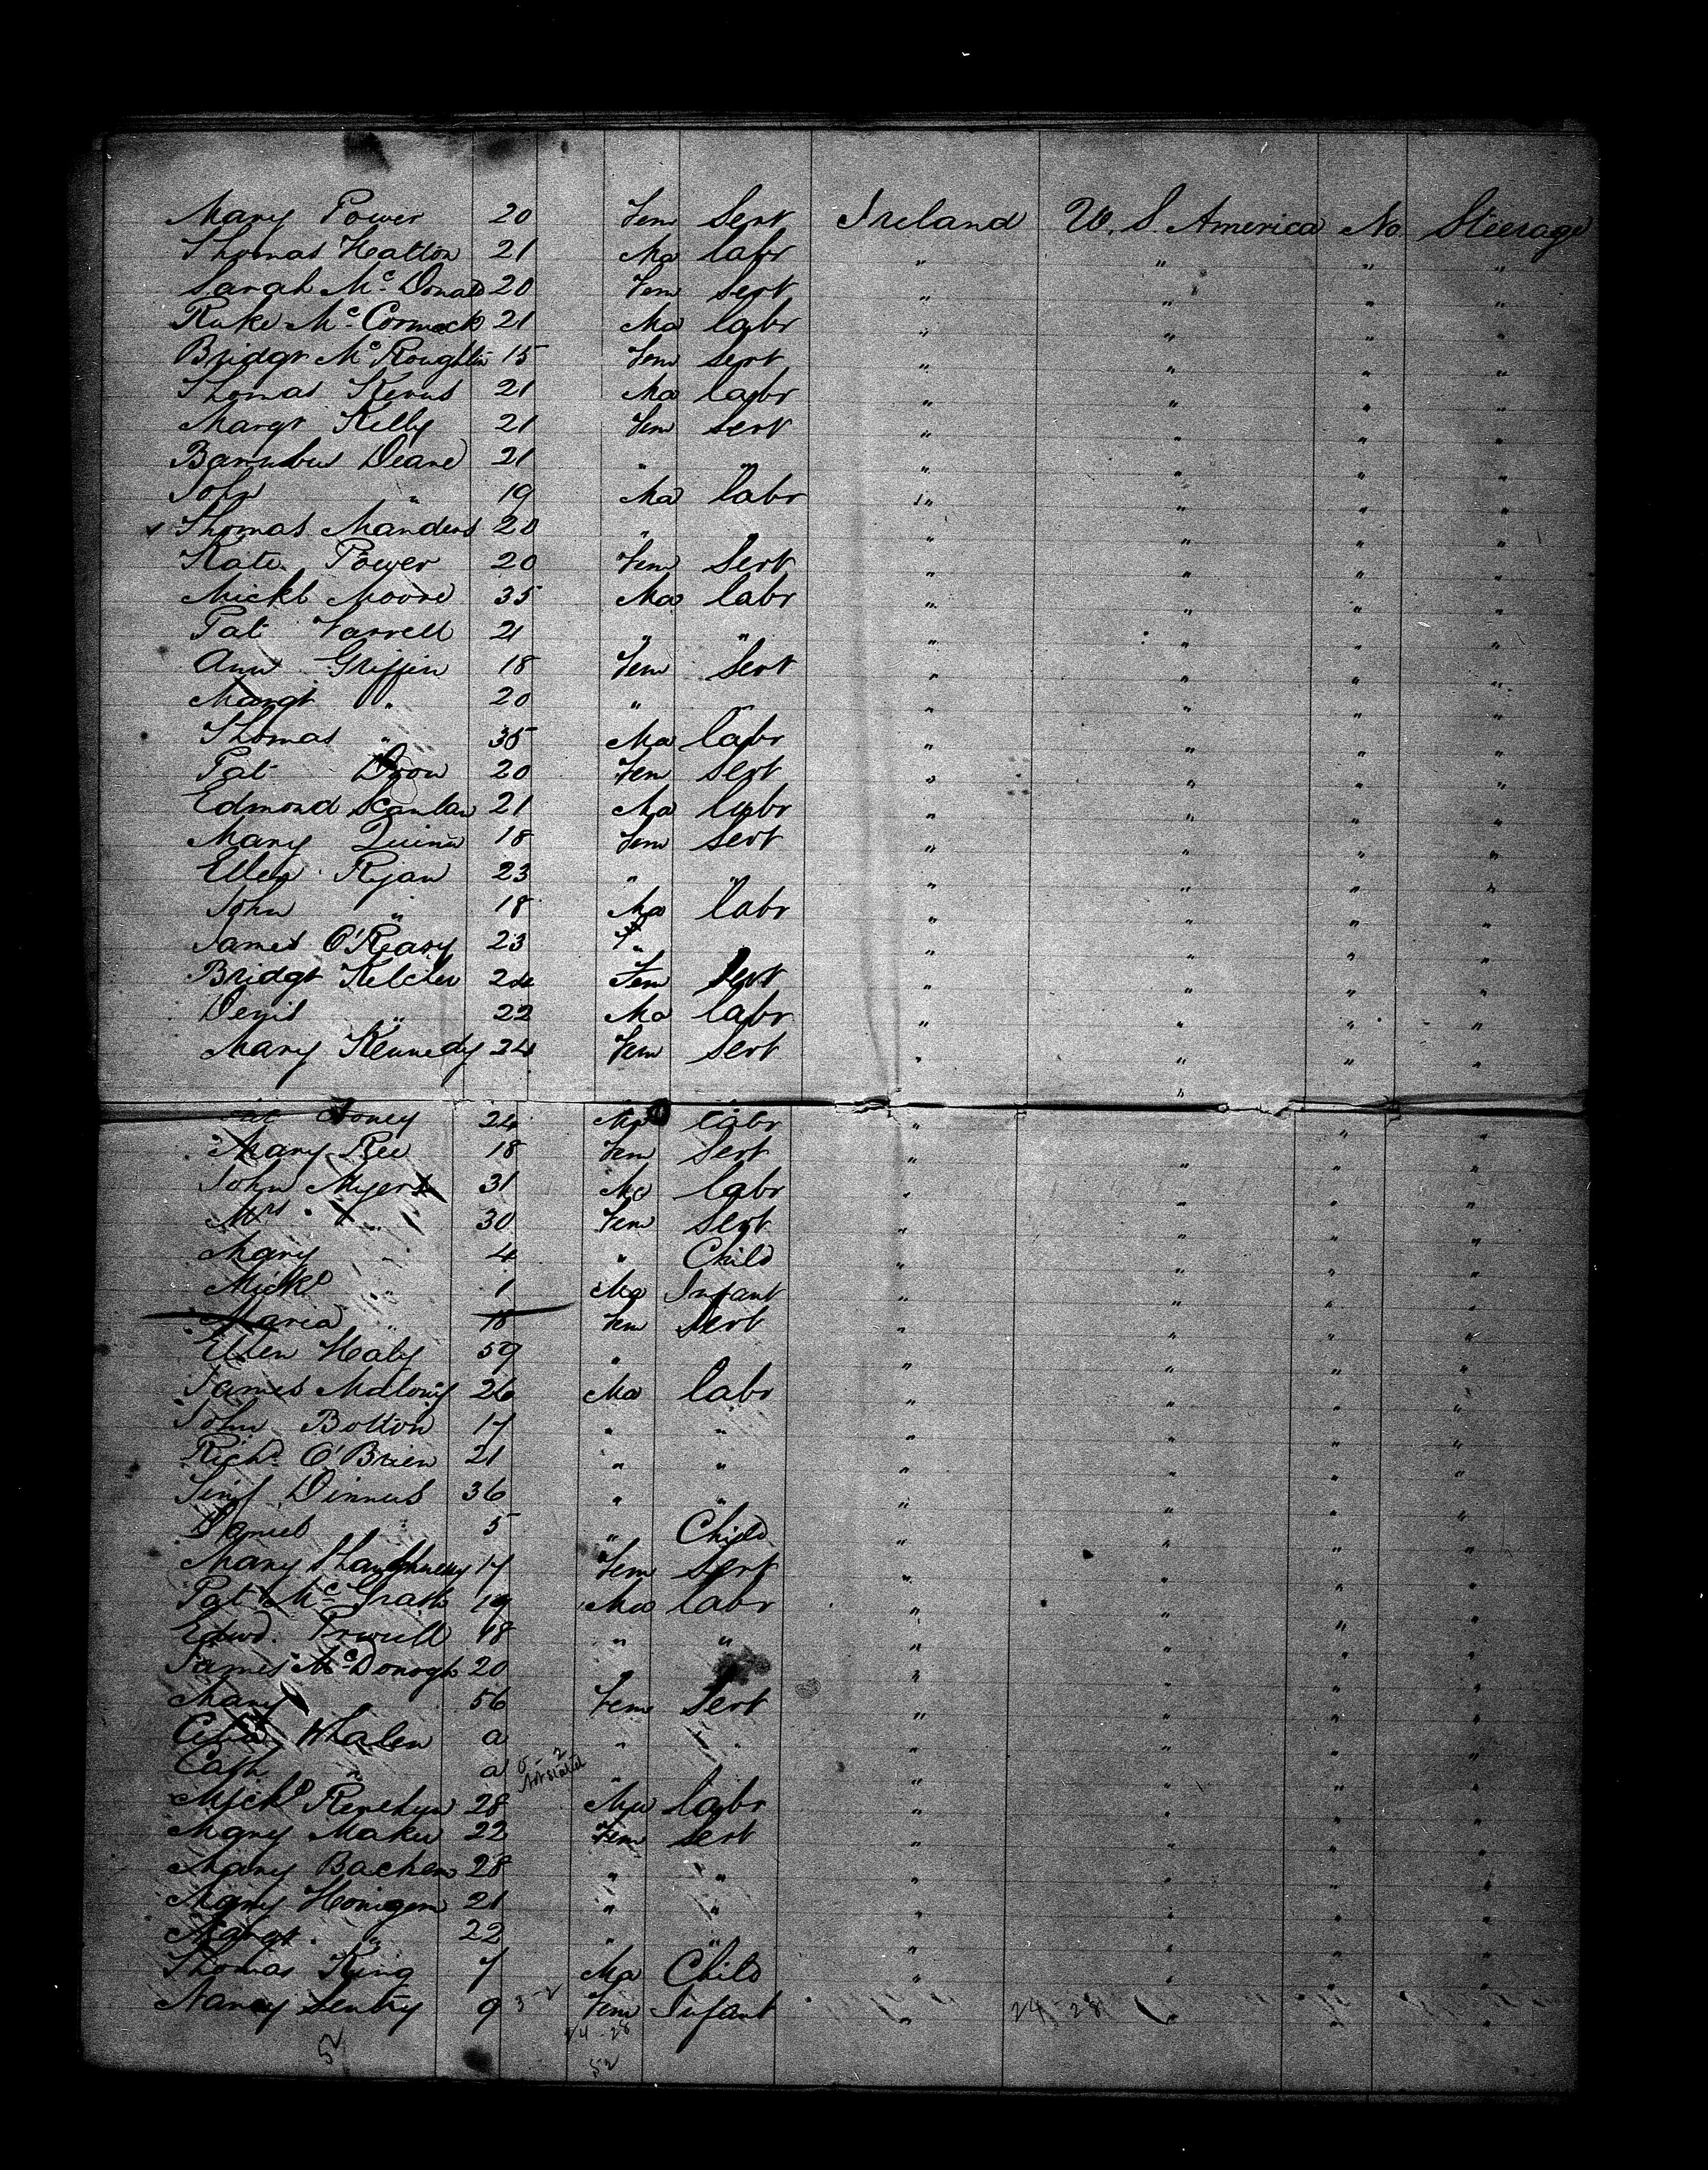 Mary Power 20 Fem Sert Ireland U. S. America No Steerage
Thomas Hatton 21 Ma labr " " " "
Sarah Mc Donald 20 Fem Sert " " " "
Mc Cormack 21 Ma labr " " " "
Bridgt Mc 15 Fem Sert " " " "
Thomas 21 Ma labr " " " "
Margt Kelly 21 Fem Sert " " " "
Deane 21 " " " " " "
John " 19 Ma labr " " " "
Thomas Manders 20 " " " " " "
Kate Power 20 Fem Sert " " " "
Mickl Moore 35 Ma labr " " " "
Pat Farrell 21 " " " " " "
Ann Griffin 18 Fem Sert " " " "
Margt " 20 " " " " " "
Thomas " 35 Ma labr " " " "
Pat 20 Fem Sert " " " "
Edmond Scanlan 21 Ma labr " " " "
Mary Quinn 18 Fem Sert " " " "
Ellen Ryan 23 " " " " " "
John " 18 Ma labr " " " "
James 23 " " " " "
Bridgt 24 Fem Sert " " " "
Denis " 22 Ma labr " " " "
Mary Kennedy 24 Fem Sert " " " "
24 Ma labr " " " "
Mary 18 Fem Sert " " " "
John Myers 31 Ma labr " " " "
Mrs " 30 Fem Sert " " " "
Mary " 4 " Child " " " "
Mickl " 1 Ma Infant " " " "
Maria " 18 Fem Sert " " " "
Ellen Healy 59 " " " " "
James Malony 26 Ma labr " " " "
John Bolton 17 " " " " " "
Richd O'Brien 21 " " " " " "
36 " " " " " "
Daniel 5 " Child " " " "
Mary Shaughnessy 17 Fem Sert " " " "
Pat Mc Grath 19 Ma labr " " " "
Edwd. 18 " " " " " "
James McDonogh 20 " " " "
Mary 56 Fem Sert " " " "
Whalen a " " " " " "
Cath " a " " " " "
Michl 28 Ma labr " " " "
Mary 22 Fem Sert " " " "
Mary 28 " " " " " "
Mary 21 " " " " " "
Margt. " 22 " " " " " "
Thomas King 7 Ma Child " " " "
Nancy 9 3-2 Fem Infant " 24 28 " " "
24-28
52 52